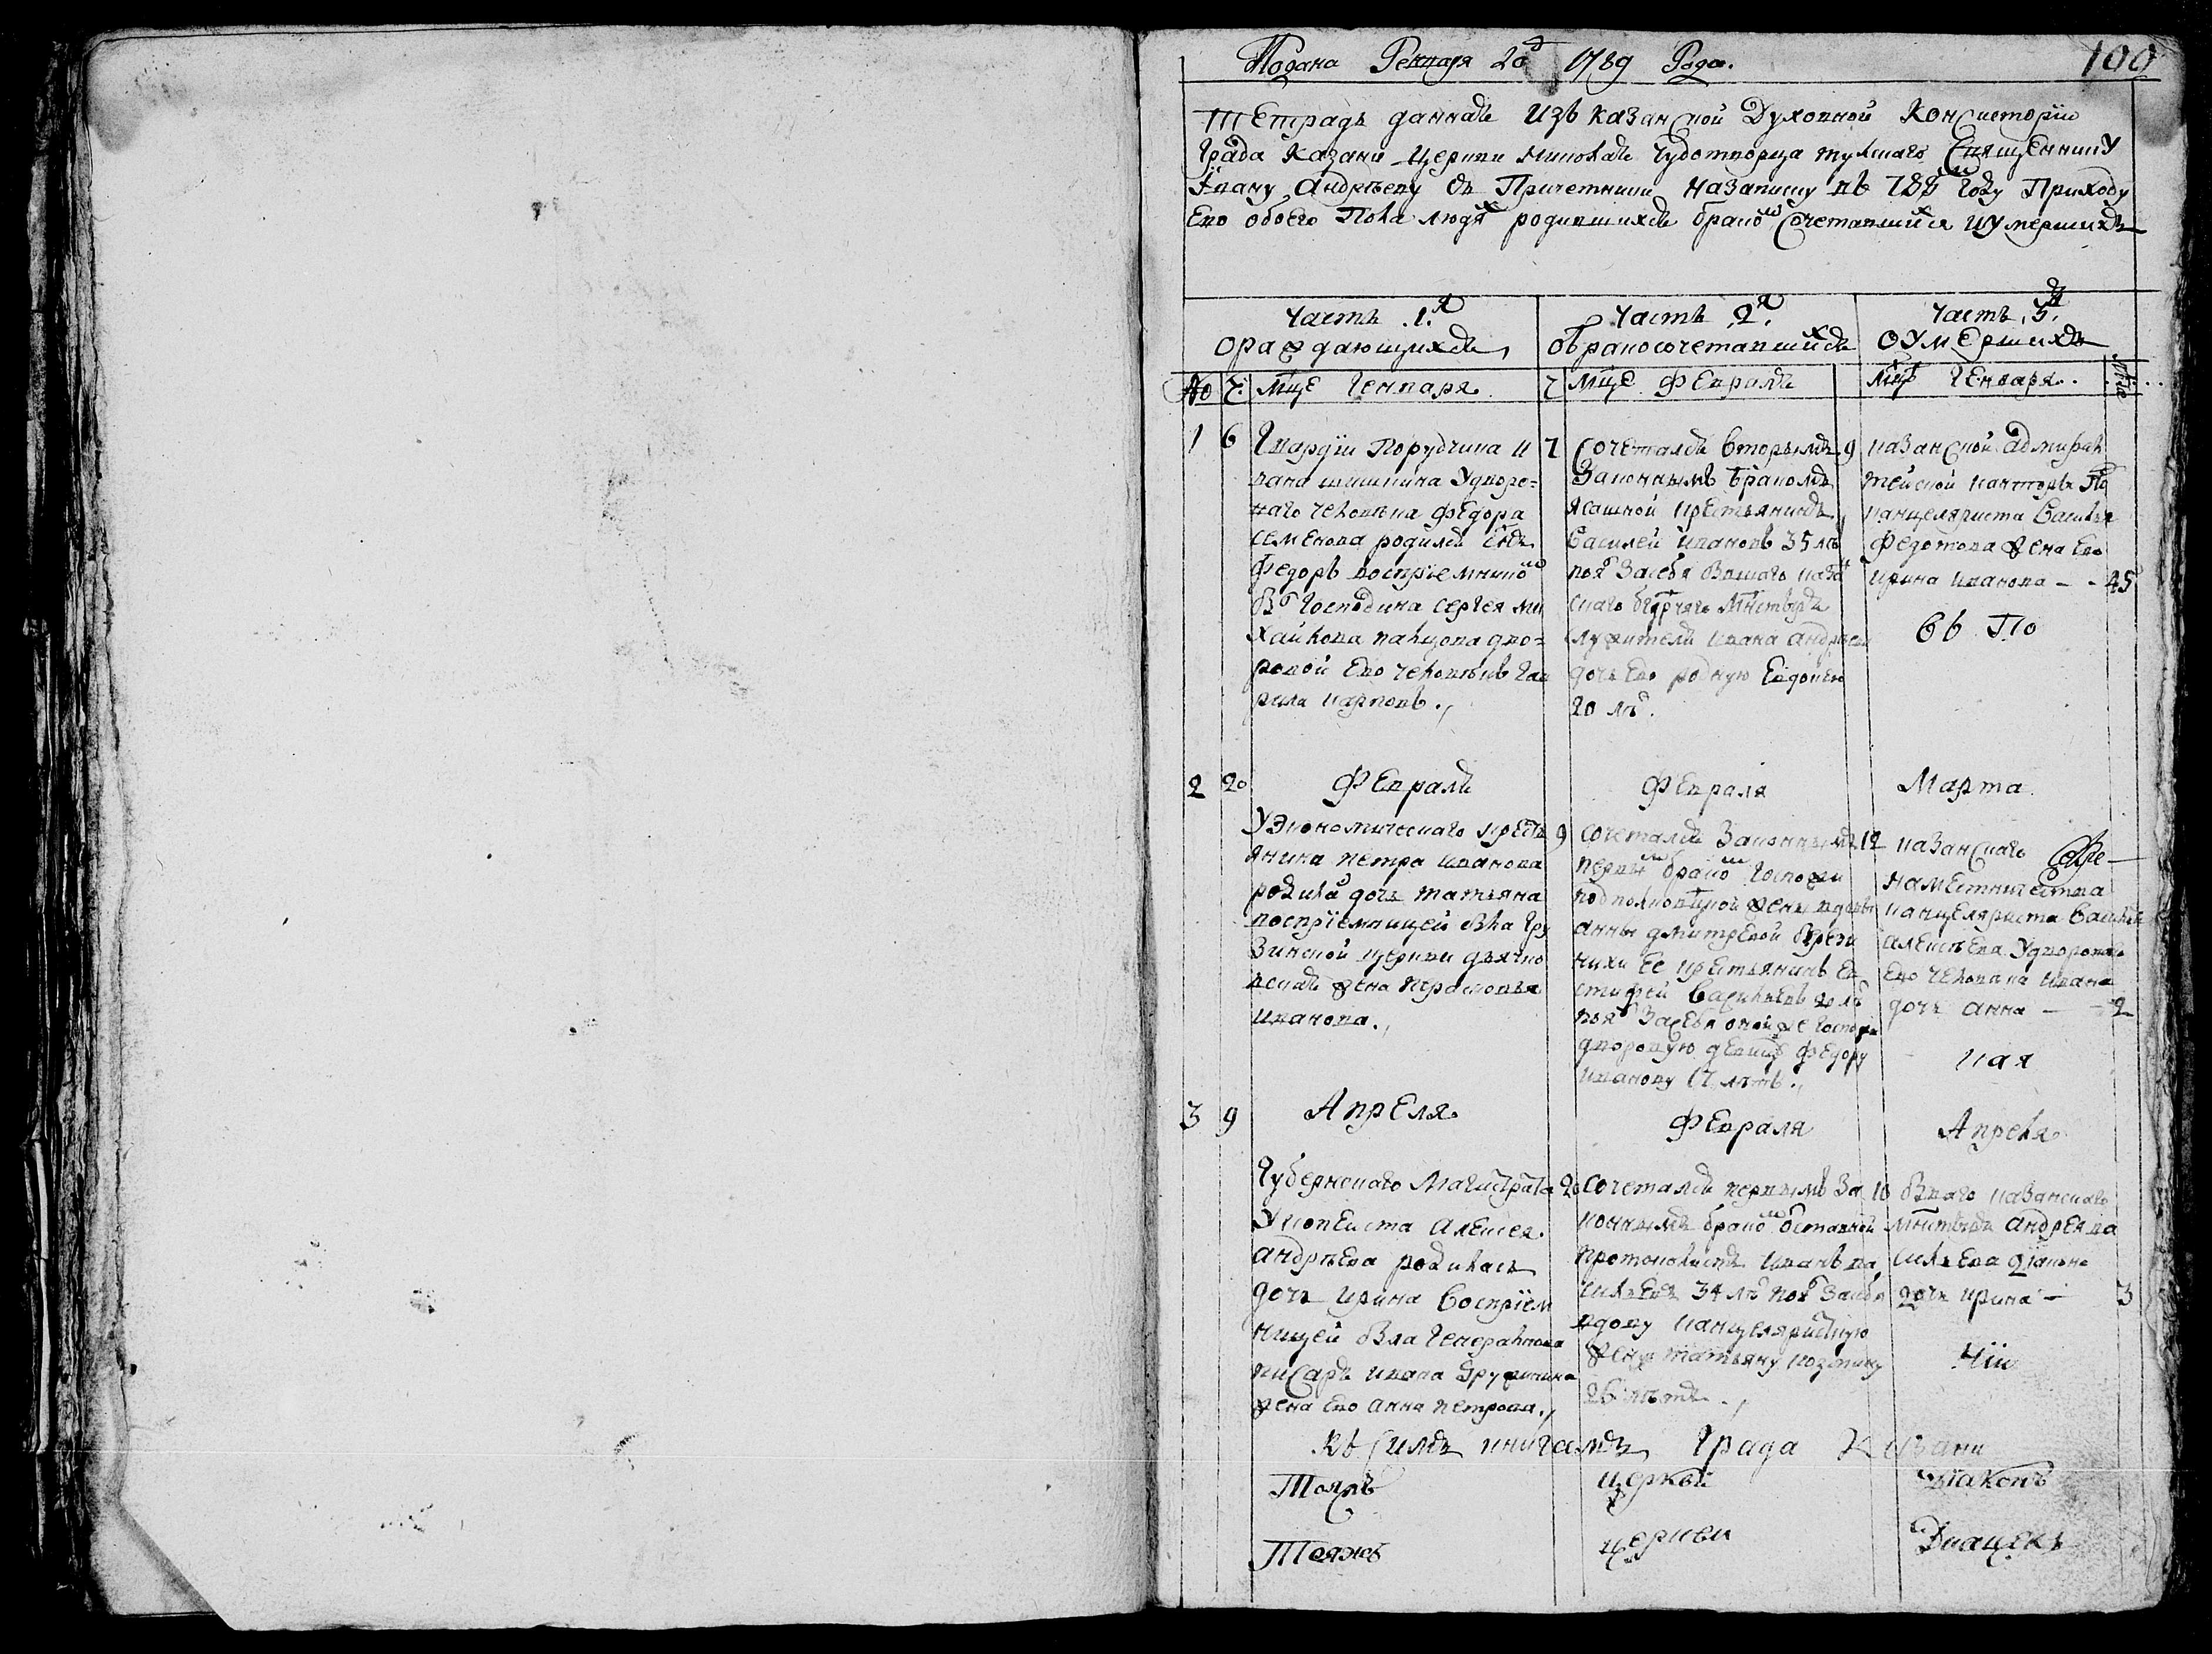 Подана Генваря 20д 1789 Года. 100
Тетрадь данная изъ казанской Духовной Консисторїи
Града Казани Церкви Николая Чудотворца тулскаго Священнику
Ївану Андрѣеву съ Причетники на записку въ 788м году Приходу
Ево обоего Пола людѣх родившихся браком Сочетавшихся и умершихъ
Часть 1.я
о раждающихся
Часть 2.я
о бракосочетавшихся
Часть 3.я
о умершихъ
№ Ч: Мце Генваря
Ч Мце Февраля
Мце Генваря.
1 6 Гвардїи Порутчика и
вана шишкина У дворо=
ваго человека Федора
семенова родился снъ
Федоръ воспрїемником
был Господина Сергея ми
хайлова дво=
ровой Ево человѣкъ Гав
рила карповъ.
7 Сочетался вторымъ
Законнымъ бракомъ
Ясашной крестьянинъ
Василей ивановъ 35 лѣ
поял за себя бвшаго каза
скаго
служителя ивана андрѣева
дочь Ево родную Евдокею
20 лѣт.
9 казанской адмирал
тейской канторы По
канцеляриста Василья
Федотова жена Ево
ирина иванова - - 45
2 20 Февраля
У экономическаго кресть
янина петра иванова
родилась дочь татьяна
воспрїемницей была Гру
зинской церкви дьячко
вская жена Прасковья
иванова.
Февраля
9 сочетался Законнымъ
первым браком Госпожи
подполковничной жены вдовы
анны дмитревой
ее крестьянинъ Ев
стифей Васильевъ лѣ
поял за себя оной же Госпожи
дворовую девицу Федору
иванову 17 лѣтъ.
Марта
12 казанскаго
наместничества
канцеляриста Василья
алексѣева У двороваго
Ево человека ивана
дочь анна - - 2
3 9 Апреля
Губернскаго Магистрата
У копеиста алексея
андрѣева родилась
дочь ирина воспрїем
ницей была Генеральнова
писаря ивана Дружинина
жена Ево анна петрова.
Февраля
20 сочетался первымъ за
коннымъ браком оставной
протоколистъ иванъ ва
сильевъ 34 лѣ поял за себя
вдову канцеляристкую
жену татьяну козмину
26 лѣтъ.
Апреля
10 бвшаго казанскаго
мнстыря андрея ва
сильева дїакона
дочь ирина - 3
Къ Симъ книгамъ Града Казани
Тояжъ церкви Дїаконъ
Тояжъ церкви Дьячекъ